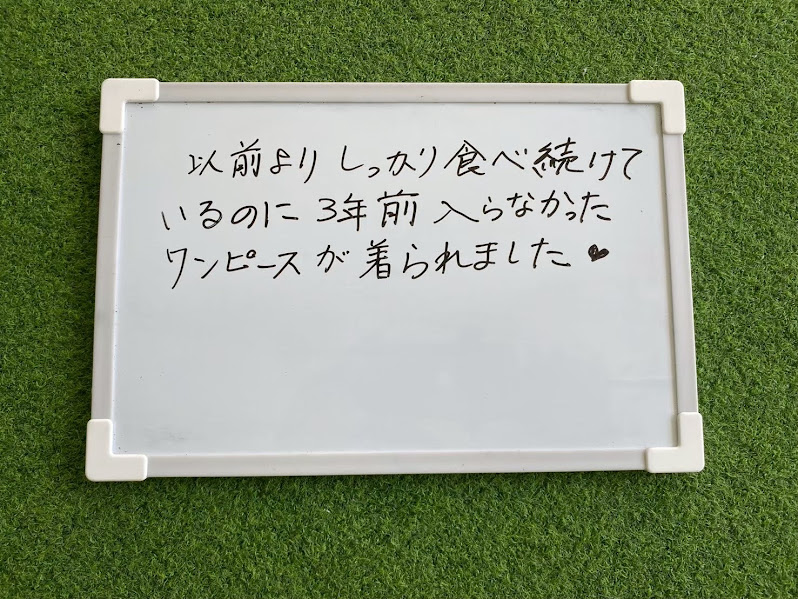 以前より しっかり食べ続けて
いるのに 3年前 入らなかった
ワンピースが着られました♥